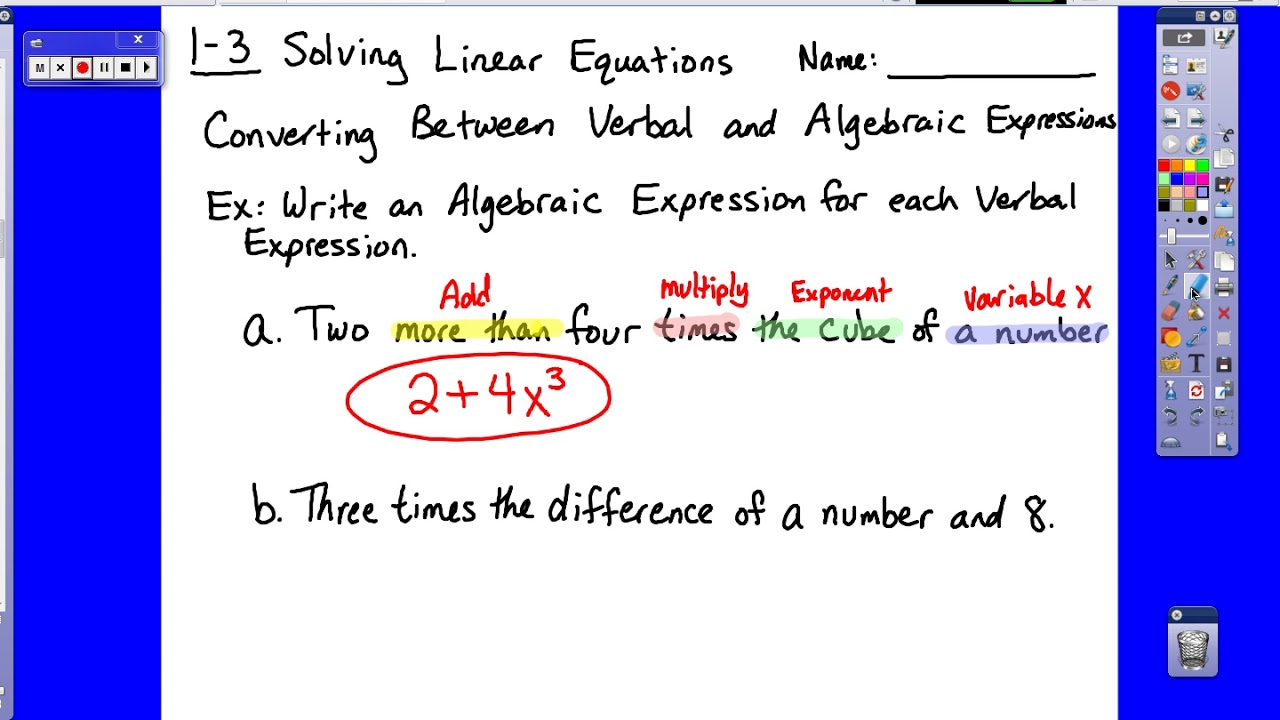 1-3 Solving Linear Equations Name:
Converting Between Verbal and Algebraic Expressions
Ex: Write an Algebraic Expression for each Verbal
Expression.
Add multiply Exponent variable X
a. Two more than four times the cube of a number
2+4x³
b. Three times the difference of a number and 8.